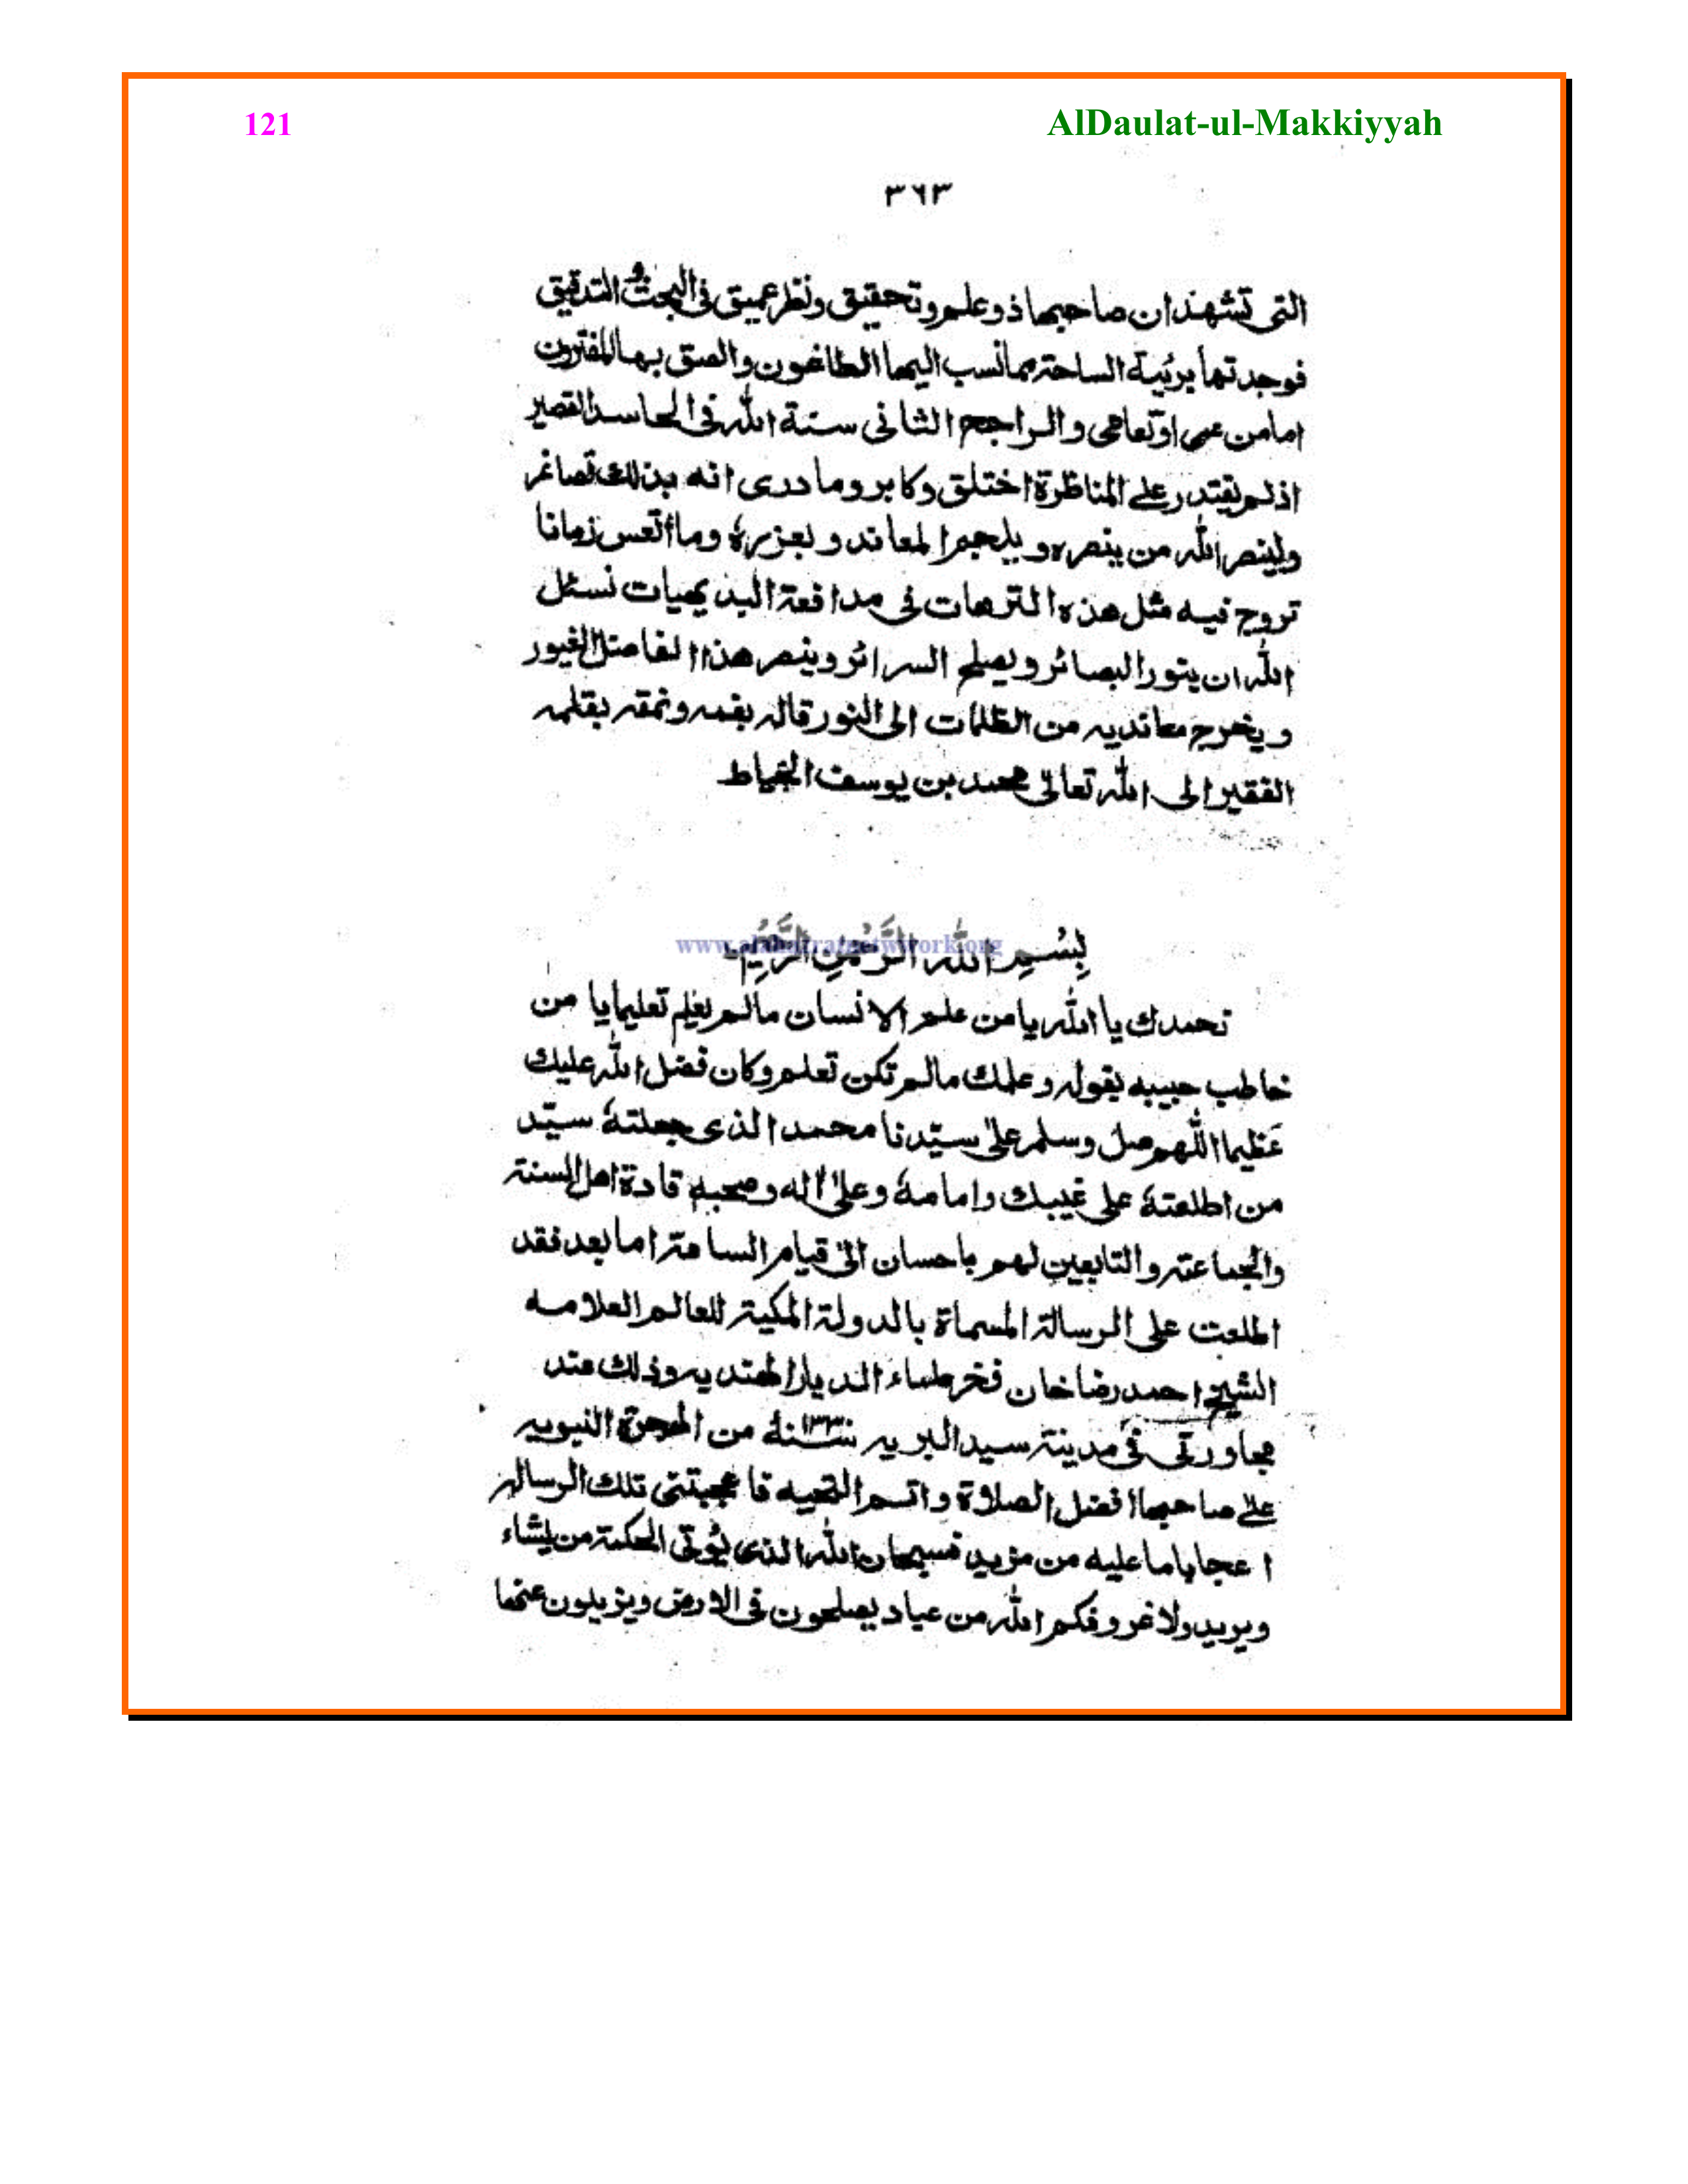 121 AlDaulat-ul-Makkiyyah
٣٦٣
التی تشهد ان صاحبها ذو علم و تحقیق و نظر عمیق فی البحث و التدقیق
فوجدتها بریئة الساحة مما نسب الیها الطاغون و الصق بها المفترون
اما من عمی او تعامی و الراجح الثانی سنة الله فی الحاسد القصیر
اذ لم یقتدر علی المناظرة اختلق و کابر و ما دری انه بذلك تصاغر
ولینصر الله من ینصره و یلجم المعاند و یعزره وما أتعس زمانا
تروج فیه مثل هذه الترهات فی مدافعة البدیهیات نسئل
الله ان ینور البصائر و یصلح السرائر و ینصر هذا الفاضل الغیور
و یخرج معاندیه من الظلمات الی النور قاله بفمه و نمقه بقلمه
الفقیر الی الله تعالیٰ محمد بن یوسف الخیاط
بِسْمِ اللہِ الرَّحْمٰنِ الرَّحِیْمِ
www.alahazratnetwork.org
نحمدك یا الله یا من علم الانسان مالم یعلم تعلیما یا من
خاطب حبیبه بقوله و علمك مالم تکن تعلم وکان فضل الله علیك
عَظیما اللّٰهم صل وسلم علیٰ سیّدنا محمد الذی جعلتهٗ سیّد
من اطلعتهٗ علی غیبك و امامهٗ و علیٰ اٰله و صحبه قادة اهل السنة
والجماعة و التابعین لهم باحسان الیٰ قیام الساعة اما بعد فقد
اطلعت علی الرسالة المسماة بالدولة المکیة للعالم العلامه
الشیخ احمد رضا خان فخر علماء الدیار الهندیه و ذلك عند
مجاورتی فی مدینة سید البریه سنة ۱۳۳۰ من الهجرة النبویه
علیٰ صاحبها افضل الصلاة و اتم التحیه فاعجبتنی تلك الرساله
اعجابا ما علیه من مزید فسبحان الله الذی یُؤتی الحکمة من یشاء
ویرید ولا غرو فکم الله من عباد یصلحون فی الارض و یزیلون عنها